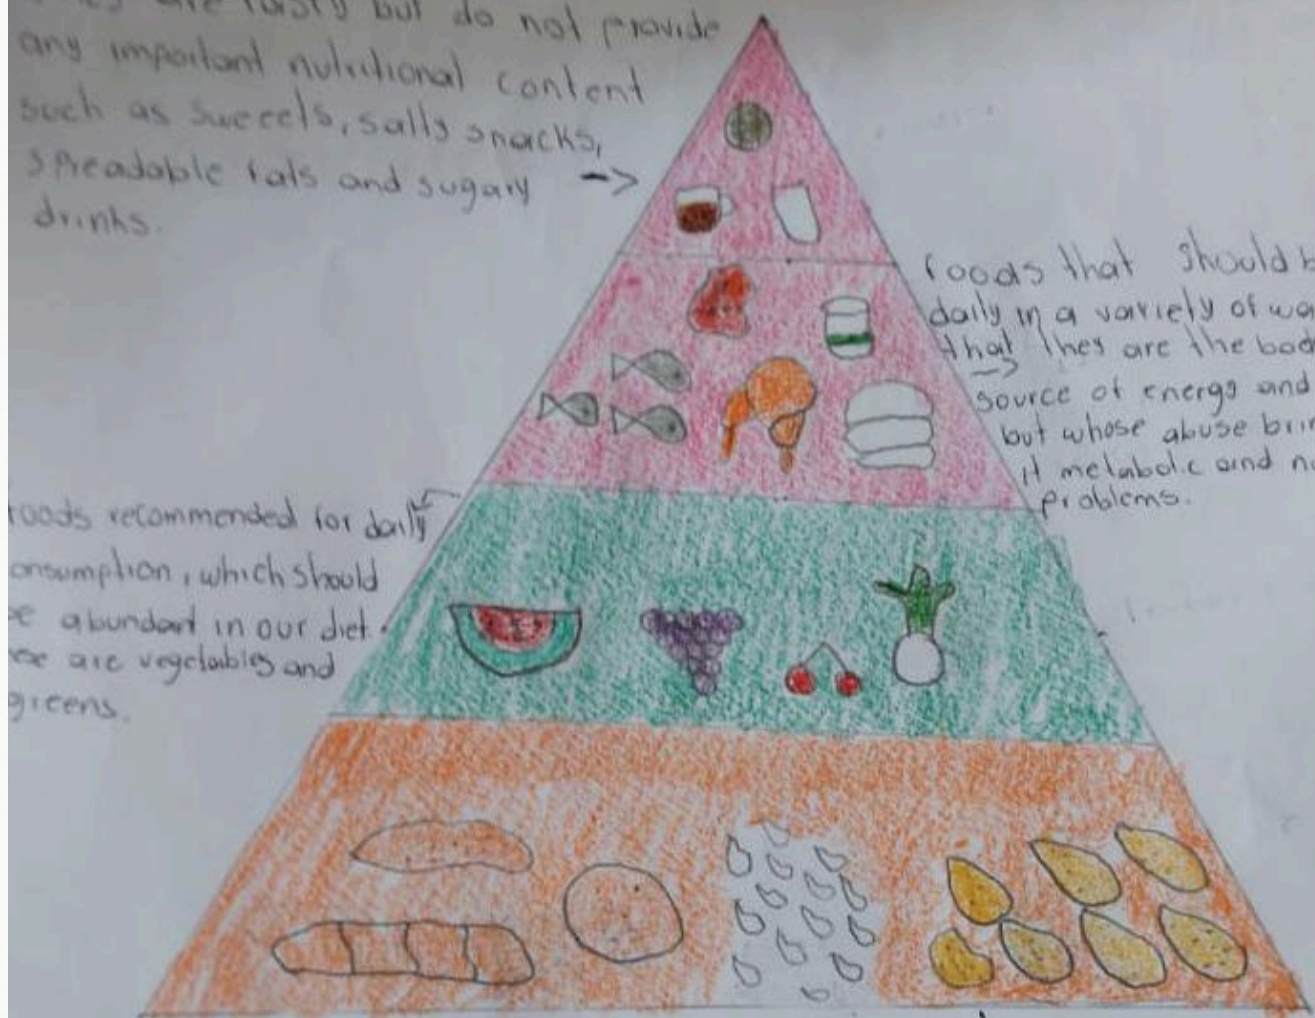 are tasty but do not provide
any important nutritional content
such as sweeels, sally snacks,
spreadable fats and sugary
drinks.
foods that should b
daily in a variety of wa
that they are the bod
source of energy and
but whose abuse brin
it metabolic and nu
problems.
foods recommended for daily
onsumption, which should
be abundant in our diet.
are vegetables and
greens.